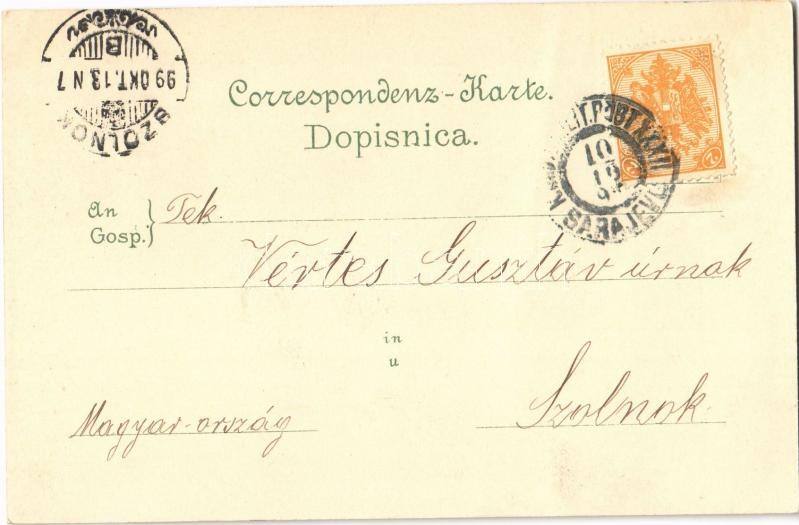 SZOLNOK
99 OKT.13.N7
B
Correspondenz-Karte.
Dopisnica.
SARAJEVO
2
An
Gosp.
Tek.
Vértes Gusztáv úrnak
in
u
Szolnok.
Magyar-ország